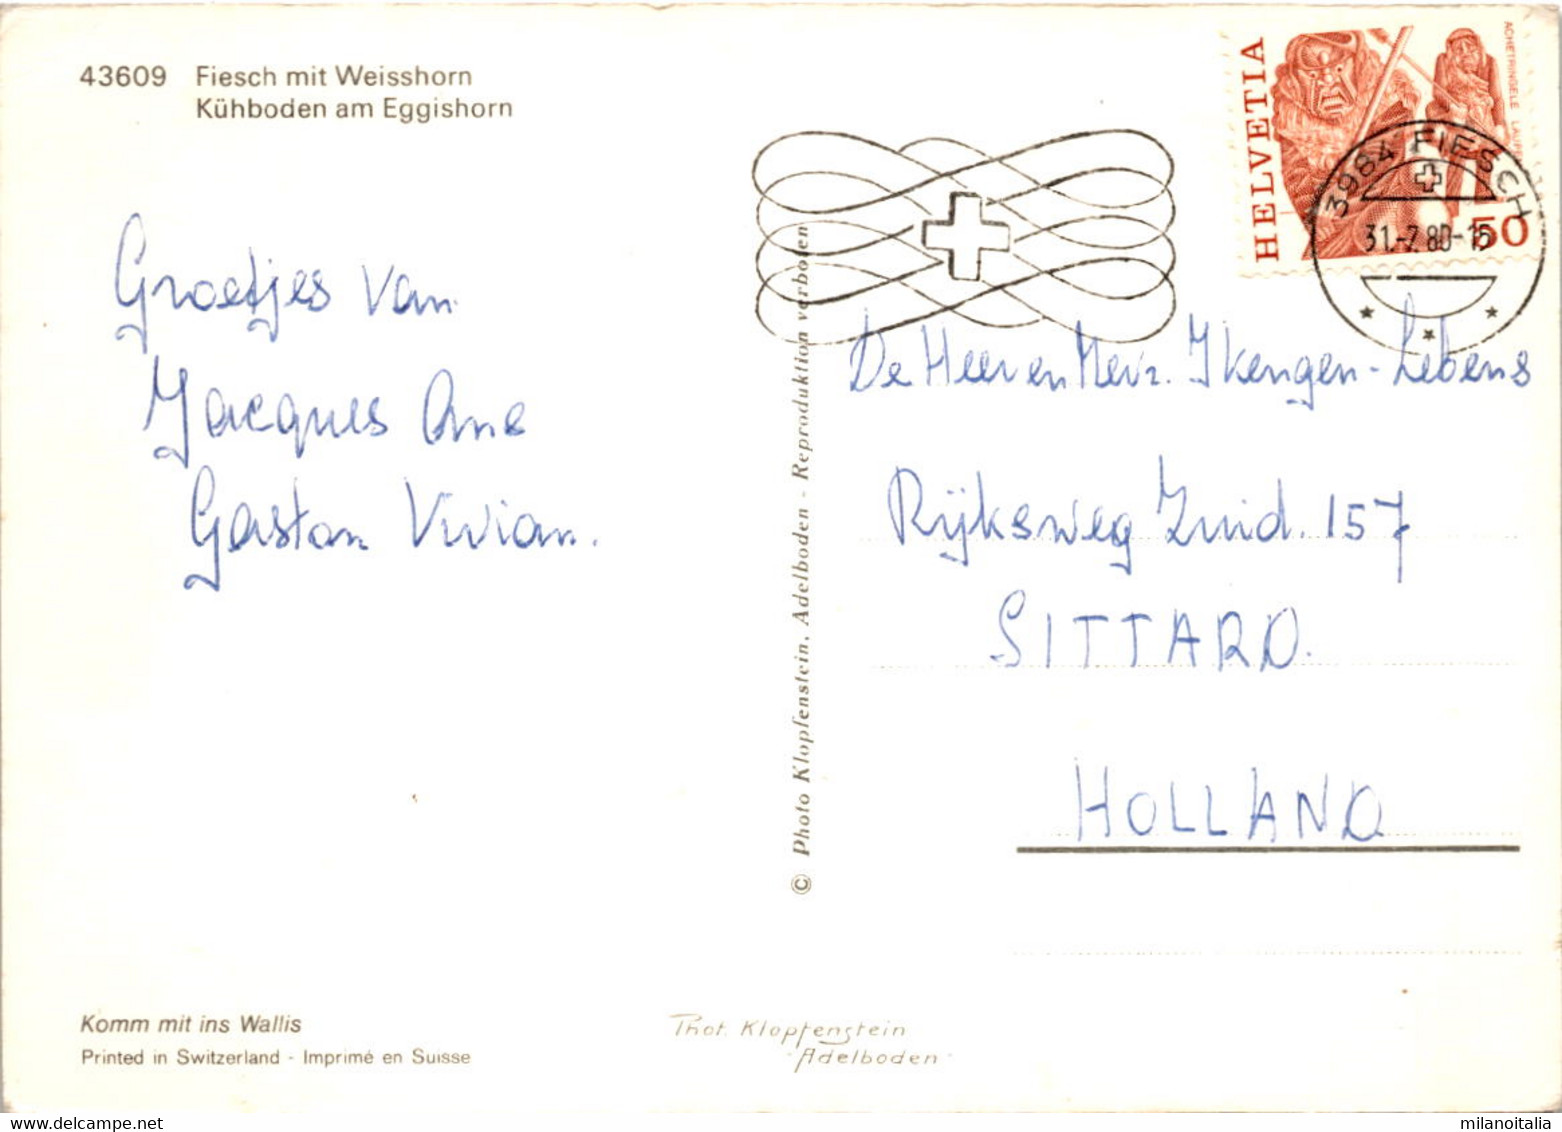 43609 Fiesch mit Weisshorn
Kühboden am Eggishorn
Groetjes van
Jacques Ans
Gaston Vivian.
HELVETIA
ACHETRINGELE LAUPEN
50
3984 FIESCH
31.-7.80-15
De Heer en Mevr. IKengen-Lebens
Rijksweg Zuid. 157
SITTARD.
HOLLAND
© Photo Klopfenstein, Adelboden - Reproduktion verboten
Komm mit ins Wallis
Printed in Switzerland - Imprimé en Suisse
Phot. Klopfenstein
Adelboden
milanoitalia